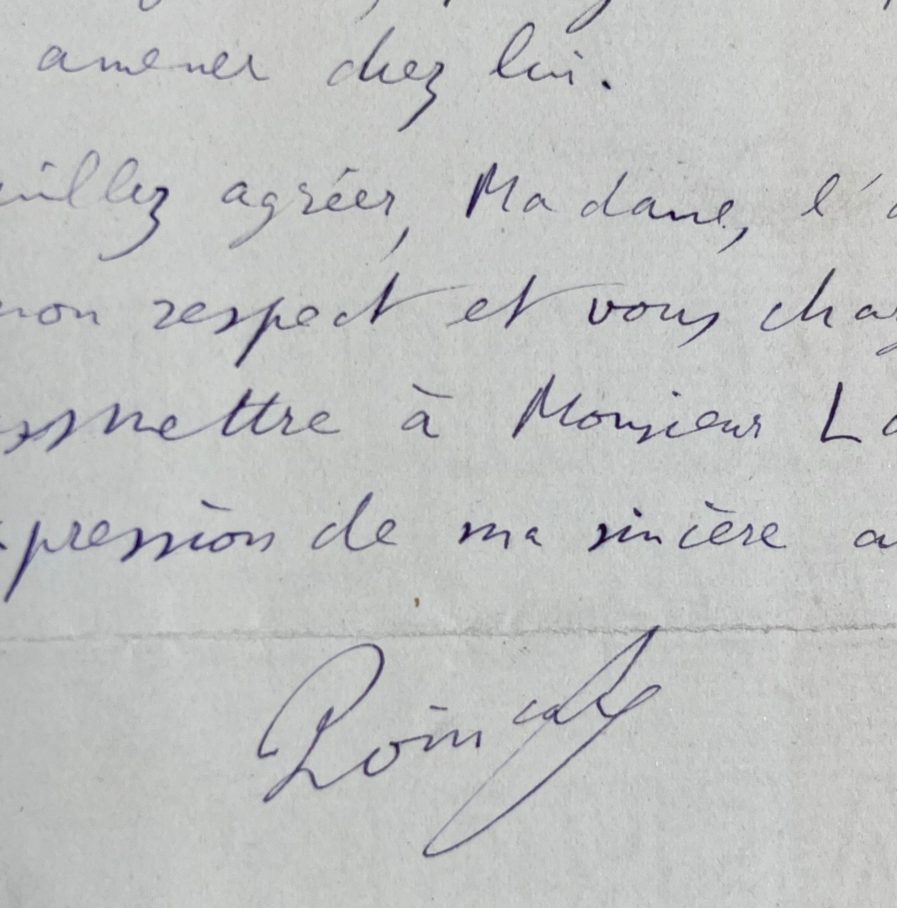 amener chez lui.
uillez agréer, Madame, l'a
mon respect et vous cha
nsmettre à Monsieur La
xpression de ma sincère a
Poincaré